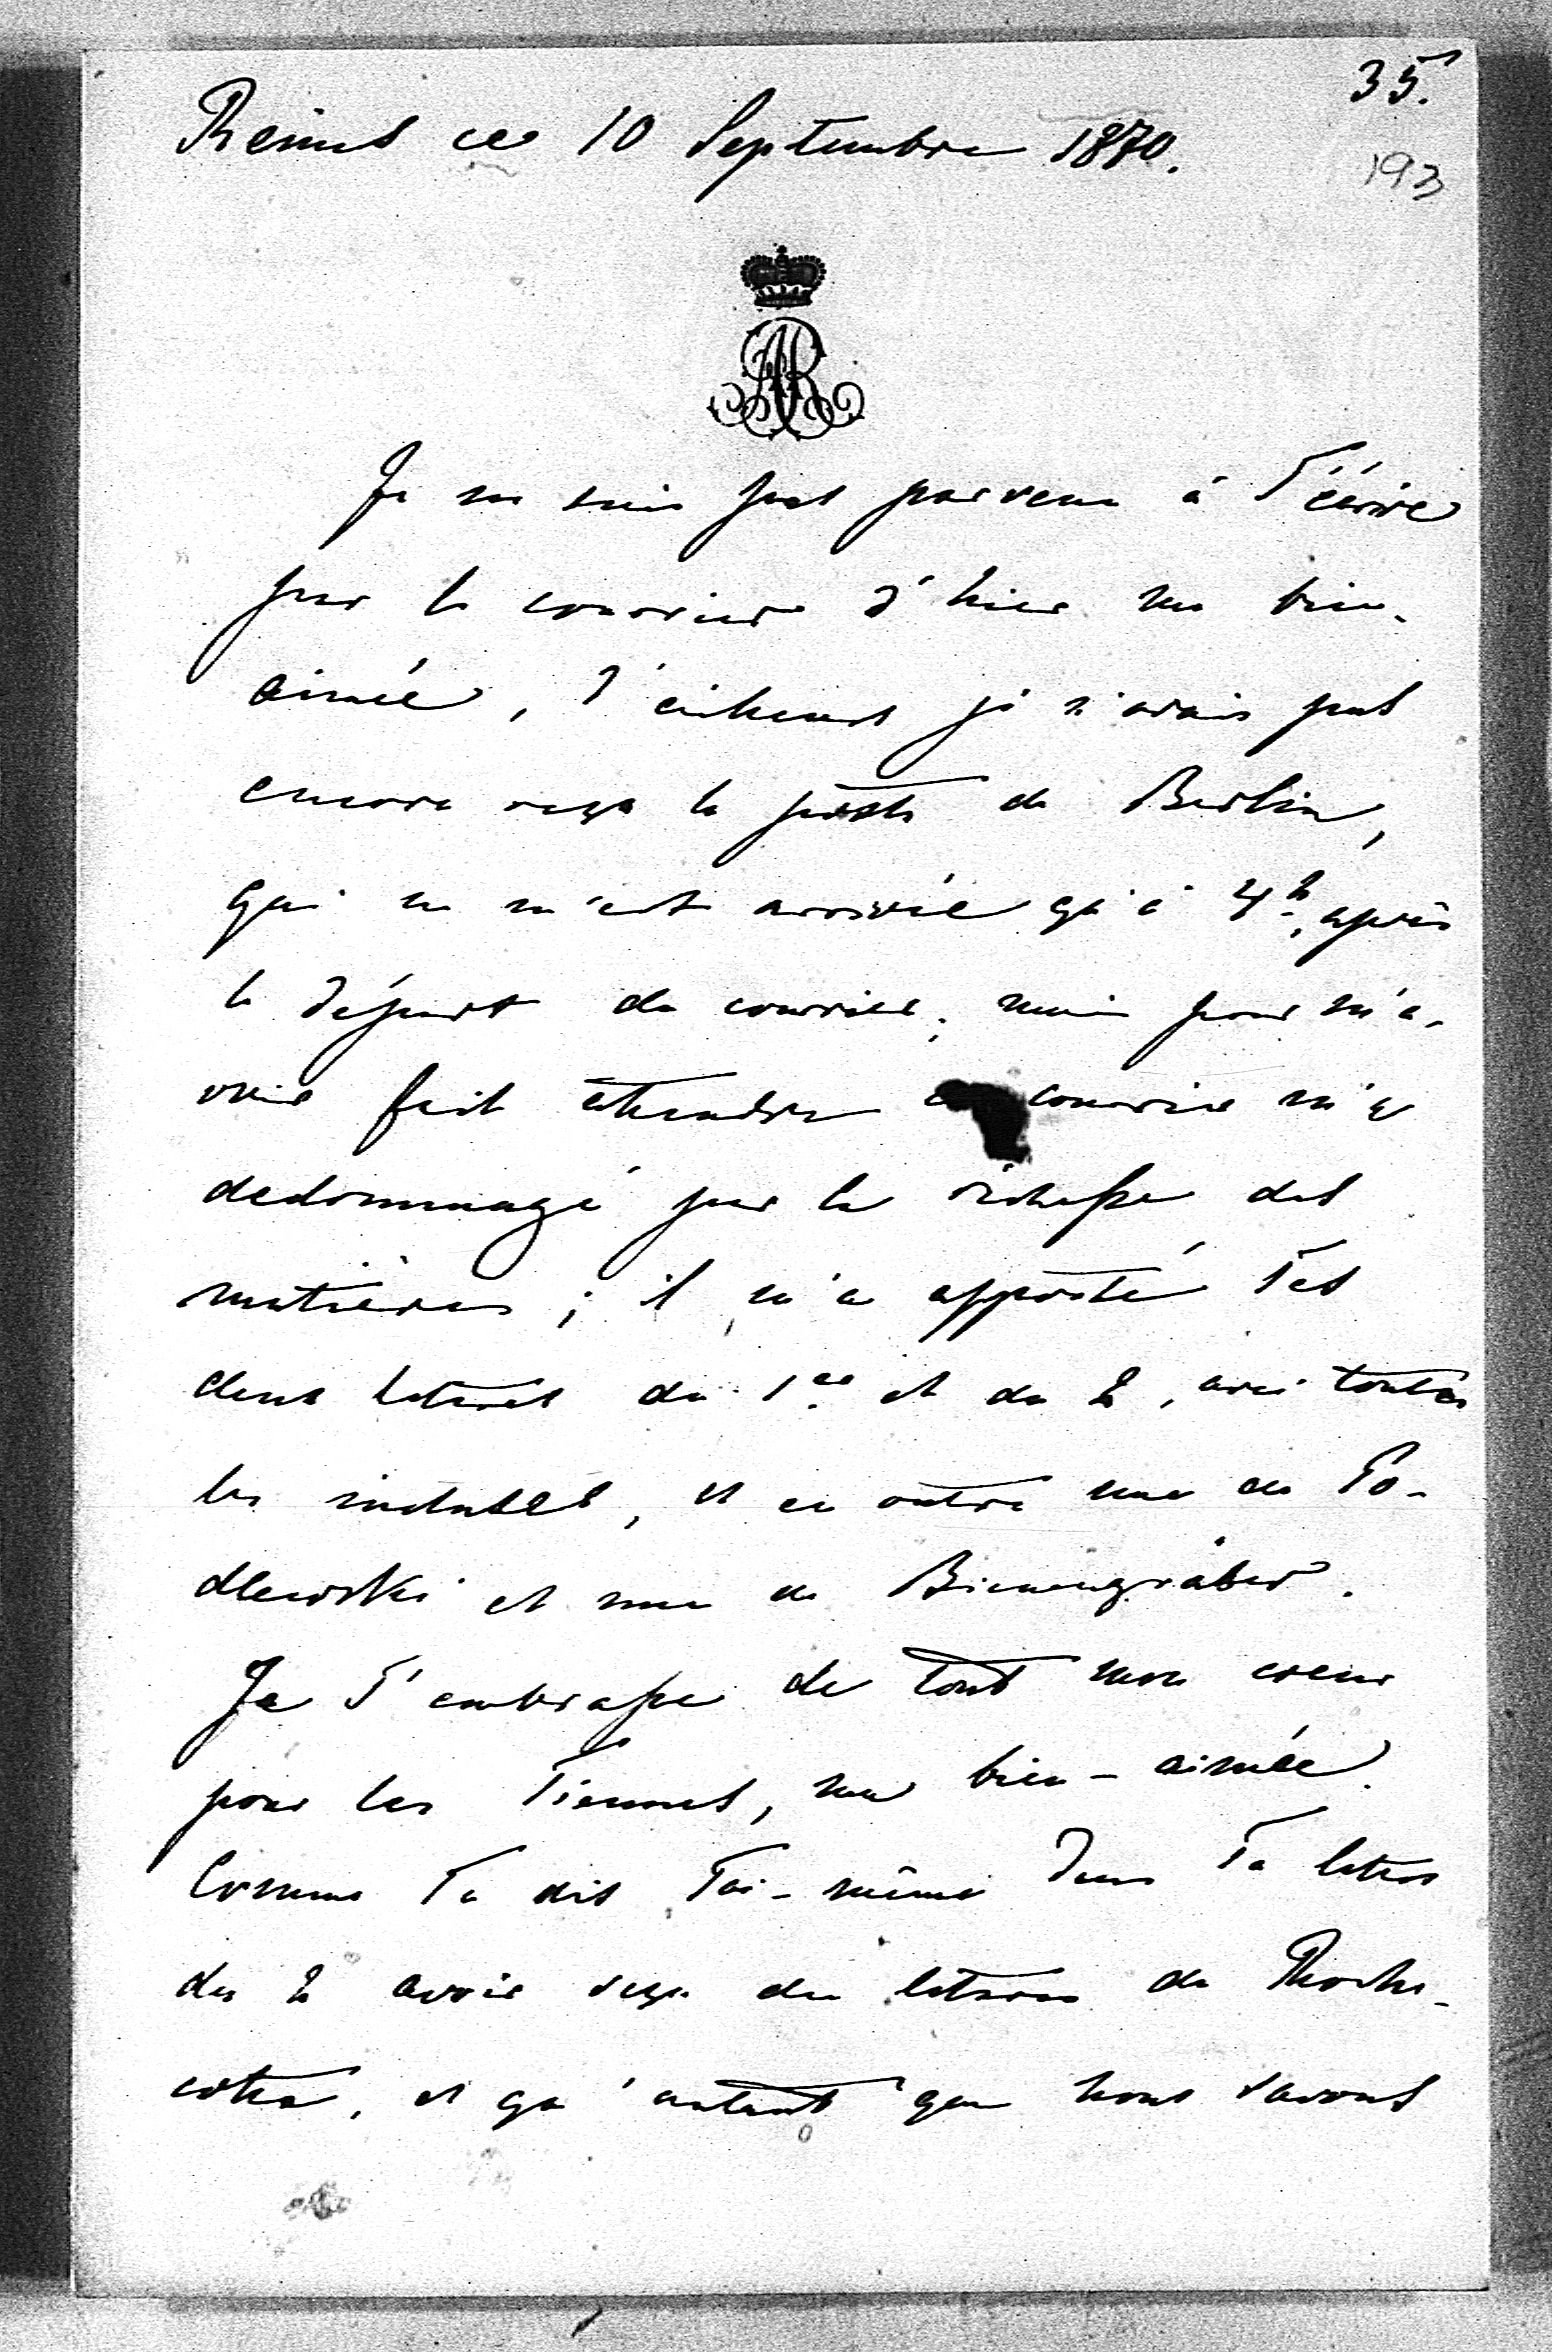 35.
Reims ce 10 Septembre 1870.
193
AR
Je ne suis pas parvenu à T'écrire
par le courrier d'hier ma bien-
aimée, d'ailleurs je n'avais pas
encore reçu la poste de Berlin,
qui ne m'est arrivée qu'à 4h., après
le départ du courrier; mais pour m'a-
voir fait attendre ce courrier m'a
dedommagé par la richesse des
matières; il m'a apporté Tes
deux lettres du 1er et du 2, avec toutes
les incluses, et en outre une de Po-
dlewski et une de Bienengräber.
Je T'embrasse de tout mon coeur
pour les Tiennes, ma bien-aimée.
Comme Tu dis Toi-même dans Ta lettre
du 2 avoir reçu des lettres de Roche-
cotte, et qu'autant que nous savons